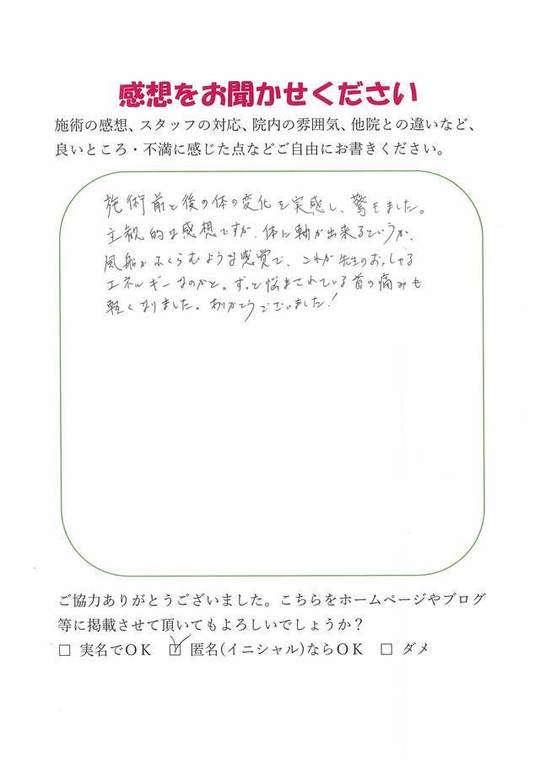 感想をお聞かせください
施術の感想、スタッフの対応、院内の雰囲気、他院との違いなど、
良いところ・不満に感じた点などご自由にお書きください。
施術前と後の体の変化を実感し、驚きました。
主観的な感想ですが、体に軸が出来るというか、
風船がふくらむような感覚で、これが先生のおっしゃる
エネルギーなのかと。ずっと悩まされている首の痛みも
軽くなりました。ありがとうございました!
ご協力ありがとうございました。こちらをホームページやブログ
等に掲載させて頂いてもよろしいでしょうか?
□ 実名でOK ☑ 匿名(イニシャル)ならOK □ ダメ